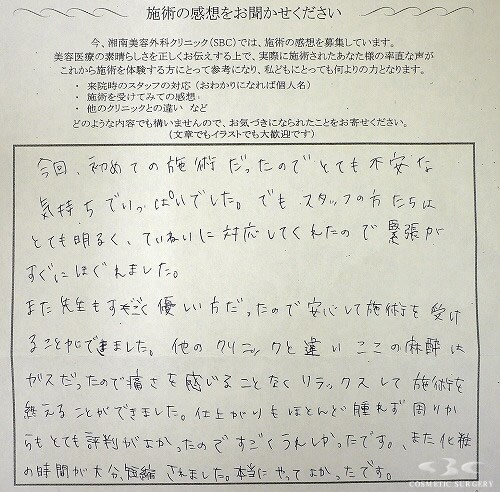 施術の感想をお聞かせください
今、湘南美容外科クリニック(SBC)では、施術の感想を募集しています。
美容医療の素晴らしさを正しくお伝えする上で、実際に施術されたあなた様の率直な声が
これから施術を体験する方にとって参考になり、私どもにとっても何よりの力となります。
・来院時のスタッフの対応(おわかりになれば個人名)
・施術を受けてみての感想。
・他のクリニックとの違い など
どのような内容でも構いませんので、お気づきになられたことをお寄せください。
(文章でもイラストでも大歓迎です)
今回、初めての施術だったのでとても不安な
気持ちでいっぱいでした。でもスタッフの方たちは
とても明るく、ていねいに対応してくれたので緊張が
すぐにほぐれました。
また先生もすごく優しい方だったので安心して施術を受け
ることができました。他のクリニックと違いここの麻酔は
ガスだったので痛さを感じることなくリラックスして施術を
終えることができました。仕上がりもほとんど腫れず周りか
らもとても評判がよかったのですごくうれしかったです。、また化粧
の時間が大分、短縮されました。本当にやってよかったです。
SBC
COSMETIC SURGERY